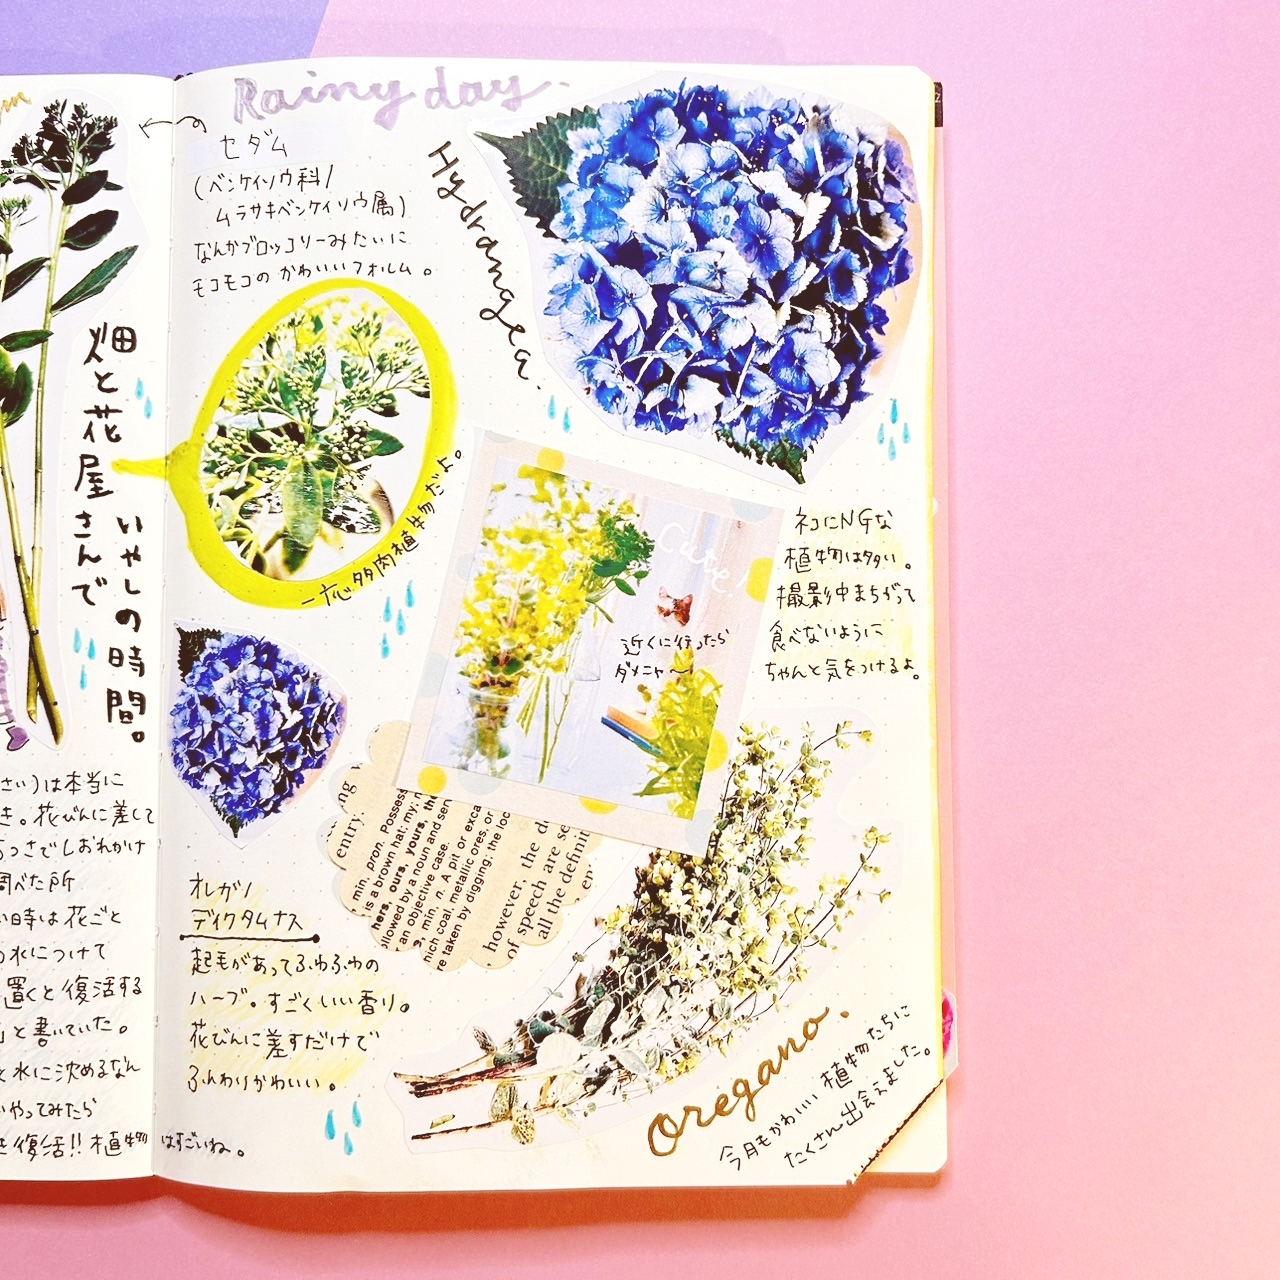 Rainy day.
セダム
(ベンケイソウ科/
ムラサキベンケイソウ属)
なんかブロッコリーみたいに
モコモコのかわいいフォルム。
Hydrangea.
畑と花屋さんで
いやしの時間。
一応多肉植物だよ。
Cute!
近くに行ったら
ダメニャ〜
ネコにNGな
植物は多い。
撮影中まちがって
食べないように
ちゃんと気をつけるよ。
さい)は本当に
き。花びんに差して
つさでしおれかけ
調べた所
い時は花ごと
の水につけて
置くと復活する
」と書いていた。
と水に沈めるなん
いやってみたら
き復活!!植物はすごいね。
オレガノ
ディクタムナス
起毛があってふわふわの
ハーブ。すごくいい香り。
花びんに差すだけで
ふんわりかわいい。
entry.
min, pron. Possess
is a brown hat; my; n
hers, ours, yours, the
ollowed by a noun and sen
r an objective case.
, min, n. A pit or exca
nich coal, metallic ores, or
re taken by digging; the loc
however, the d
of speech are se
all the defini
Oregano.
今月もかわいい植物たちに
たくさん出会えました。